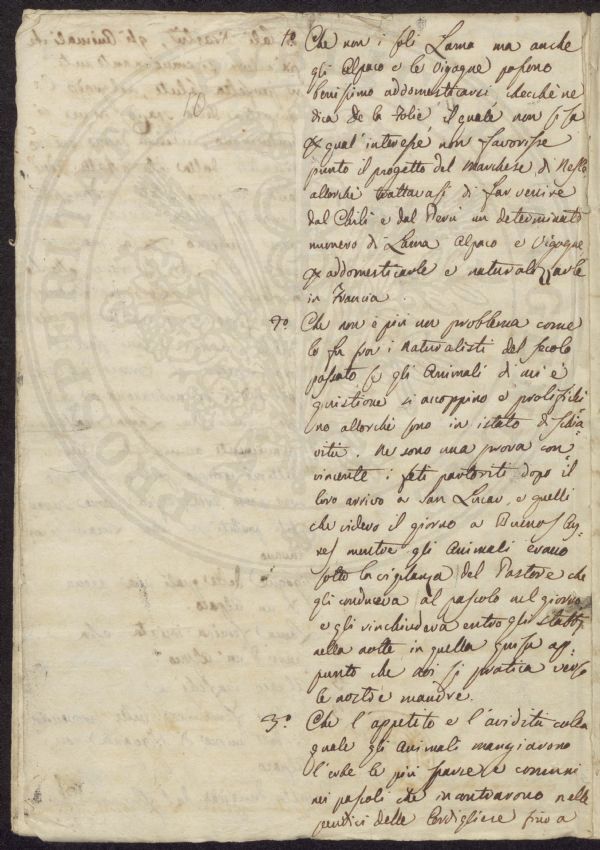 1.º Che non i soli Lama ma anche
gli Alpaco e le Vigogne possono
benissimo addomesticarsi checchè ne
dica de la Folie il quale non si sa
qual' interesse non favorisse
punto il progetto del Marchese di Nesle
allorchè trattavasi di far venire
dal Chilì e dal Perù un determinato
numero di Lama Alpaco e Vigogne
addomesticarle e naturalizzarle
in Francia.
2.º Che non è più un problema come
lo fu pei i Naturalisti del secolo
passato se gli Animali di cui è
quistione si accoppino e prolifichi=
no allorchè sono in istato di schia=
vitù. Ne sono una prova con=
vincente i feti partoriti dopo il
loro arrivo a San Lucar, e quelli
che videro il giorno a Buenos Ay=
res mentre gli Animali erano
sotto la vigilanza del Pastore che
gli conduceva al pascolo nel giorno
e gli rinchiudeva entro gli stabbj
nella notte in quella guisa ap=
punto che noi si pratica verso
le nostre mandre.
3.º Che l'appetito e l'avidità colla
quale gli Animali mangiavono
l'erbe le più scarse e comuni
nei pascoli che incontrarono nelle
pendici delle Cordigliere fino a